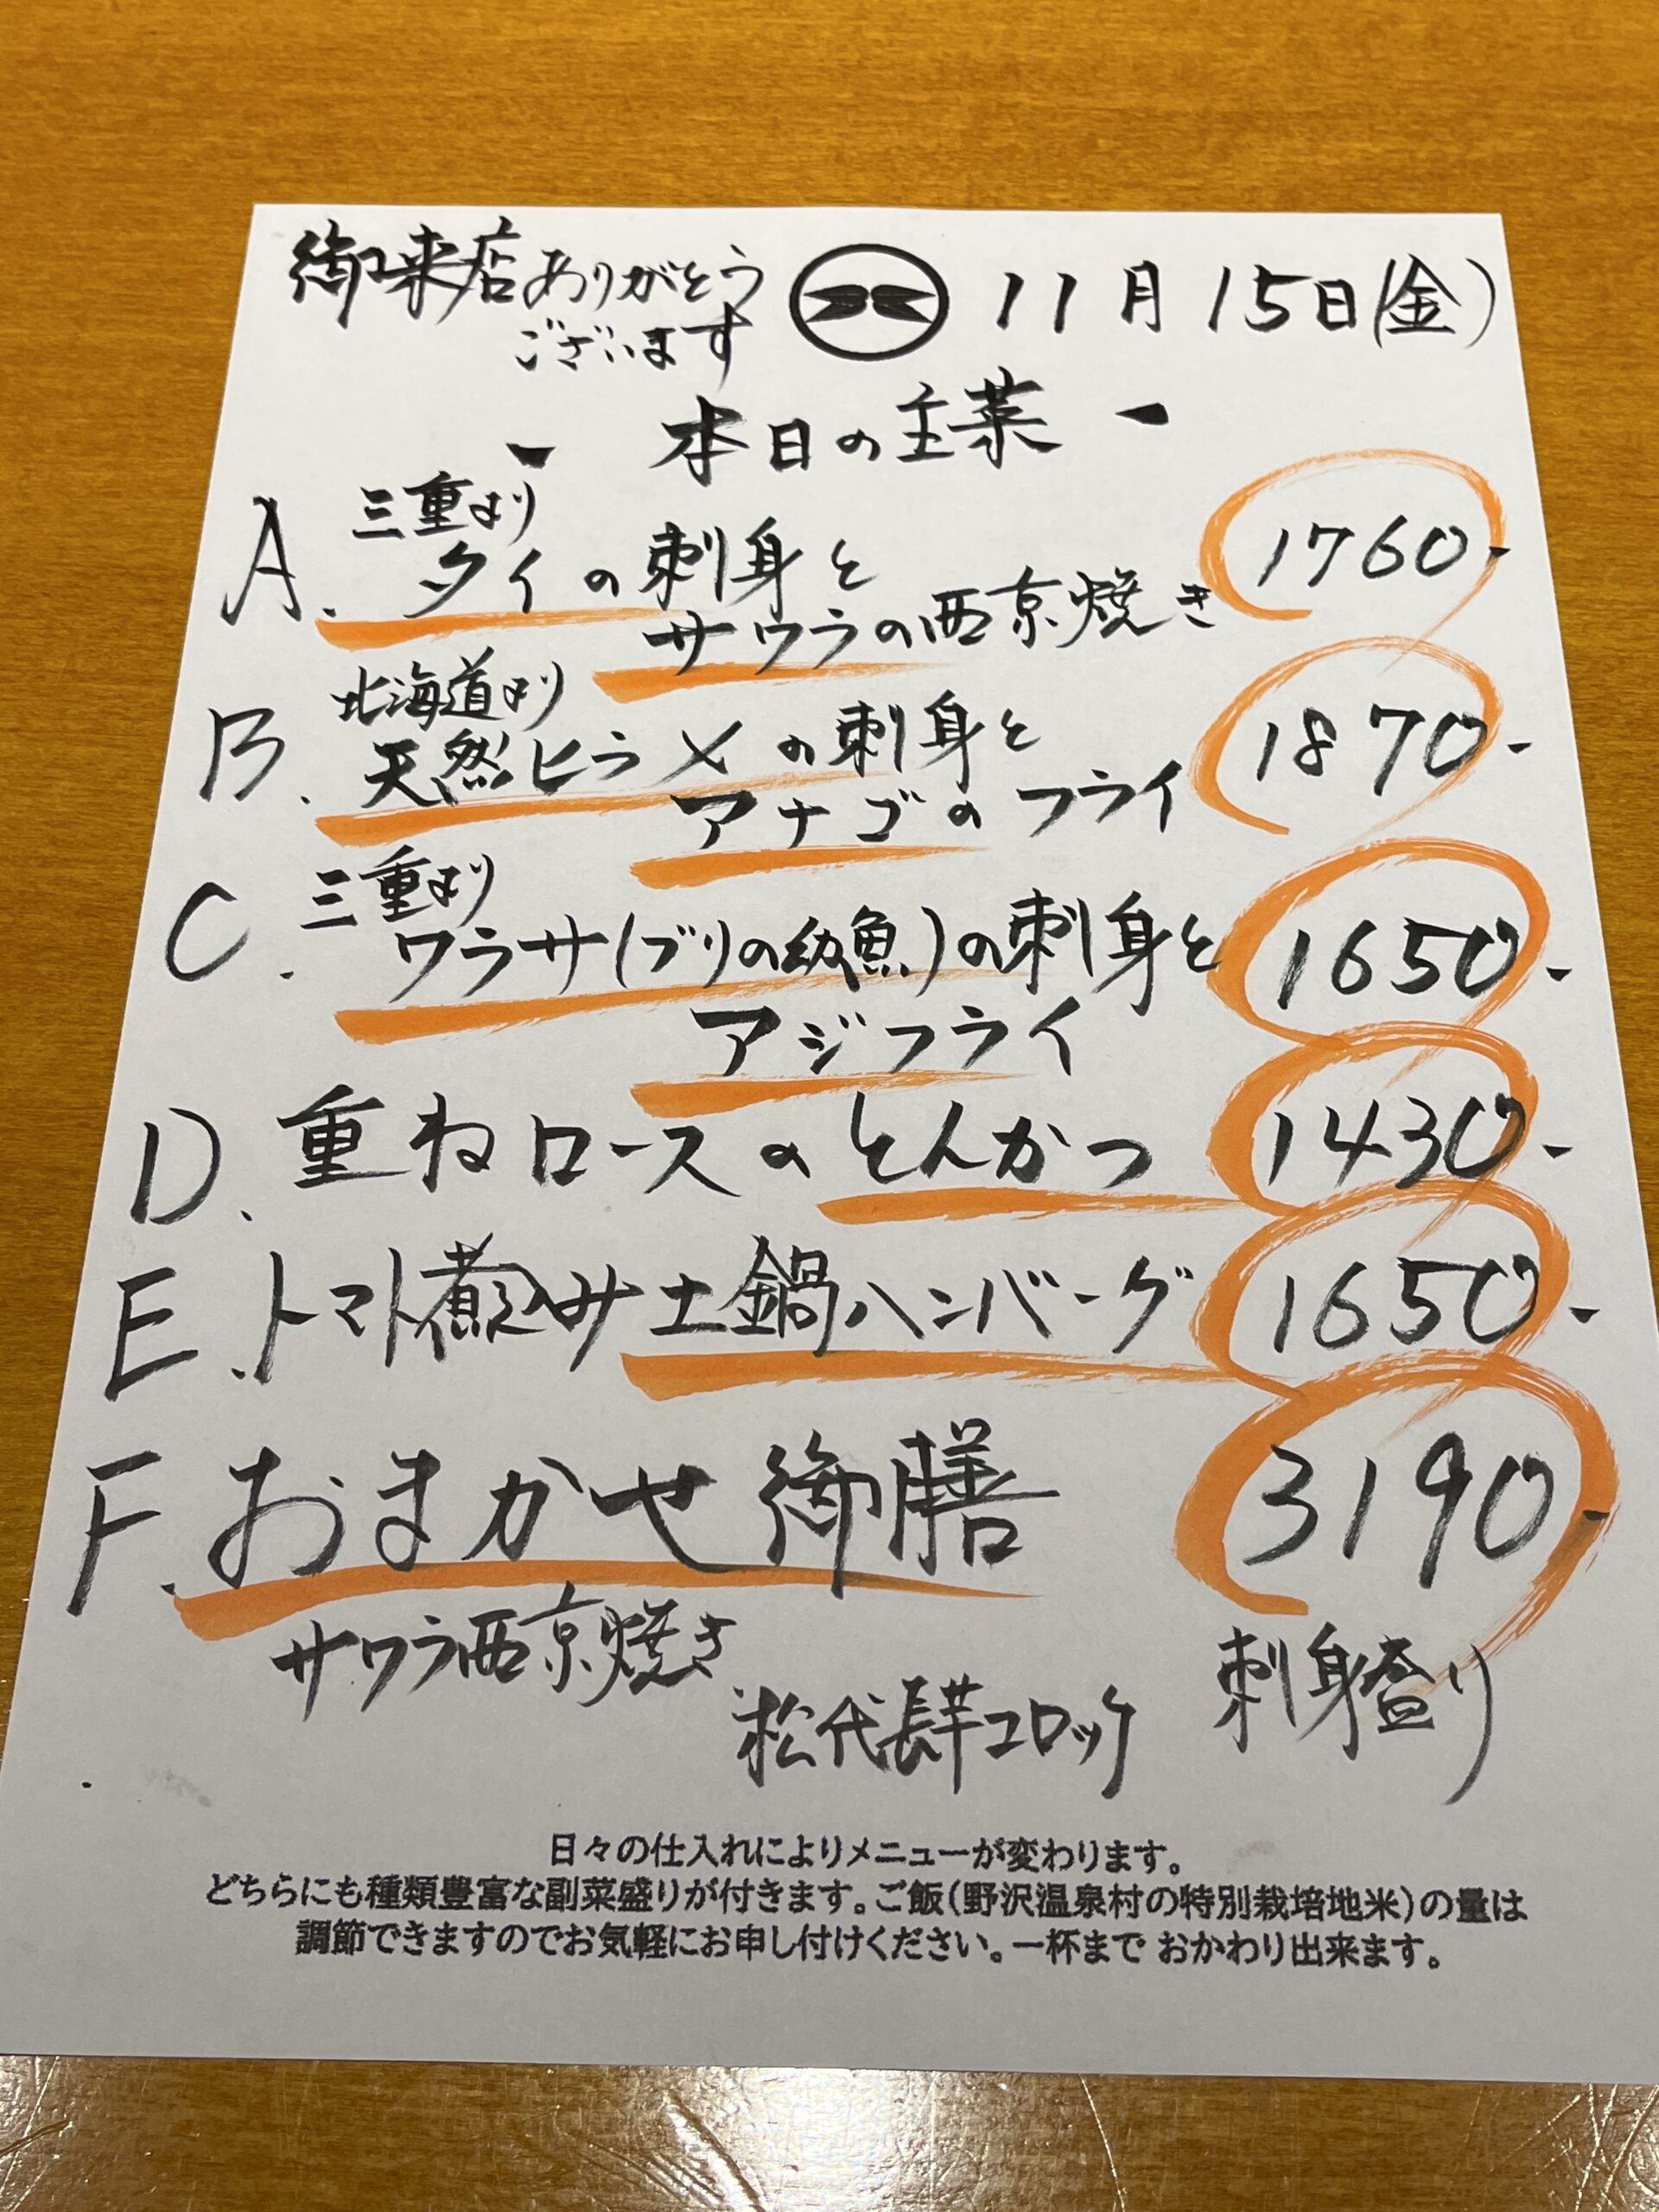 御来店ありがとう
ございます
11月15日(金)
- 本日の主菜 -
A. 三重より
タイの刺身と
サワラの西京焼き
1760-
B. 北海道より
天然ヒラメの刺身と
アナゴのフライ
1870-
C. 三重より
ワラサ(ブリの幼魚)の刺身と
アジフライ
1650-
D. 重ねロースのとんかつ 1430-
E. トマト煮込み土鍋ハンバーグ 1650-
F. おまかせ御膳 3190-
サワラ西京焼き
松代長芋コロッケ
刺身盛り
日々の仕入れによりメニューが変わります。
どちらにも種類豊富な副菜盛りが付きます。ご飯(野沢温泉村の特別栽培地米)の量は
調節できますのでお気軽にお申し付けください。一杯まで おかわり出来ます。